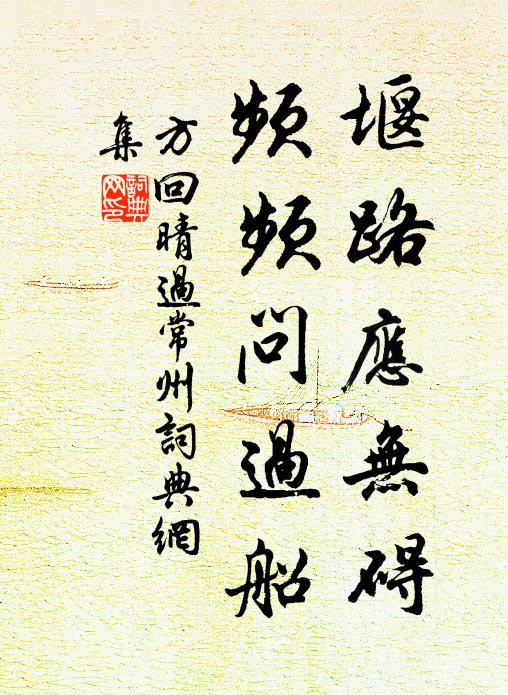 堰路應無碍
頻頻問過船
方回晴過常州詞典網
集
詞典
网印